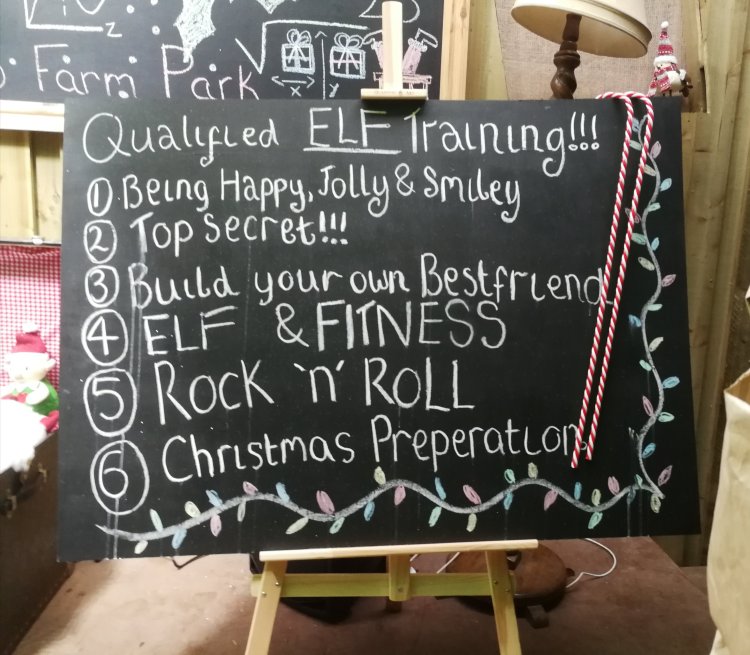 z
Farm Park
x
y
Qualified ELF Training!!!
① Being Happy, Jolly & Smiley
② Top Secret!!!
③ Build your own Bestfriend
④ ELF & FITNESS
⑤ ROCK 'n' ROLL
⑥ Christmas Preperation